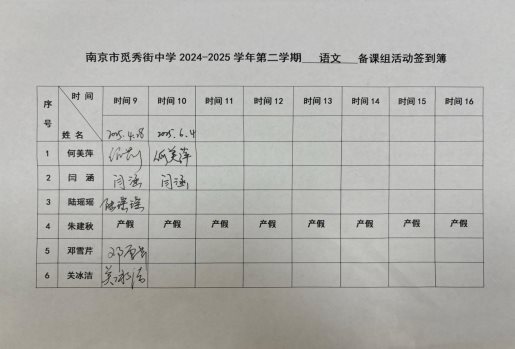 南京市觅秀街中学2024-2025学年第二学期 语文 备课组活动签到簿
序号 时间 姓名 时间9 时间10 时间11 时间12 时间13 时间14 时间15 时间16
2025.4.28 2025.6.4
1 何美萍 何美萍
2 闫涵 闫涵 闫涵
3 陆瑶瑶 陆瑶瑶
4 朱建秋 产假 产假 产假 产假 产假 产假 产假 产假
5 邓雪芹 邓雪芹
6 关冰洁 关冰洁